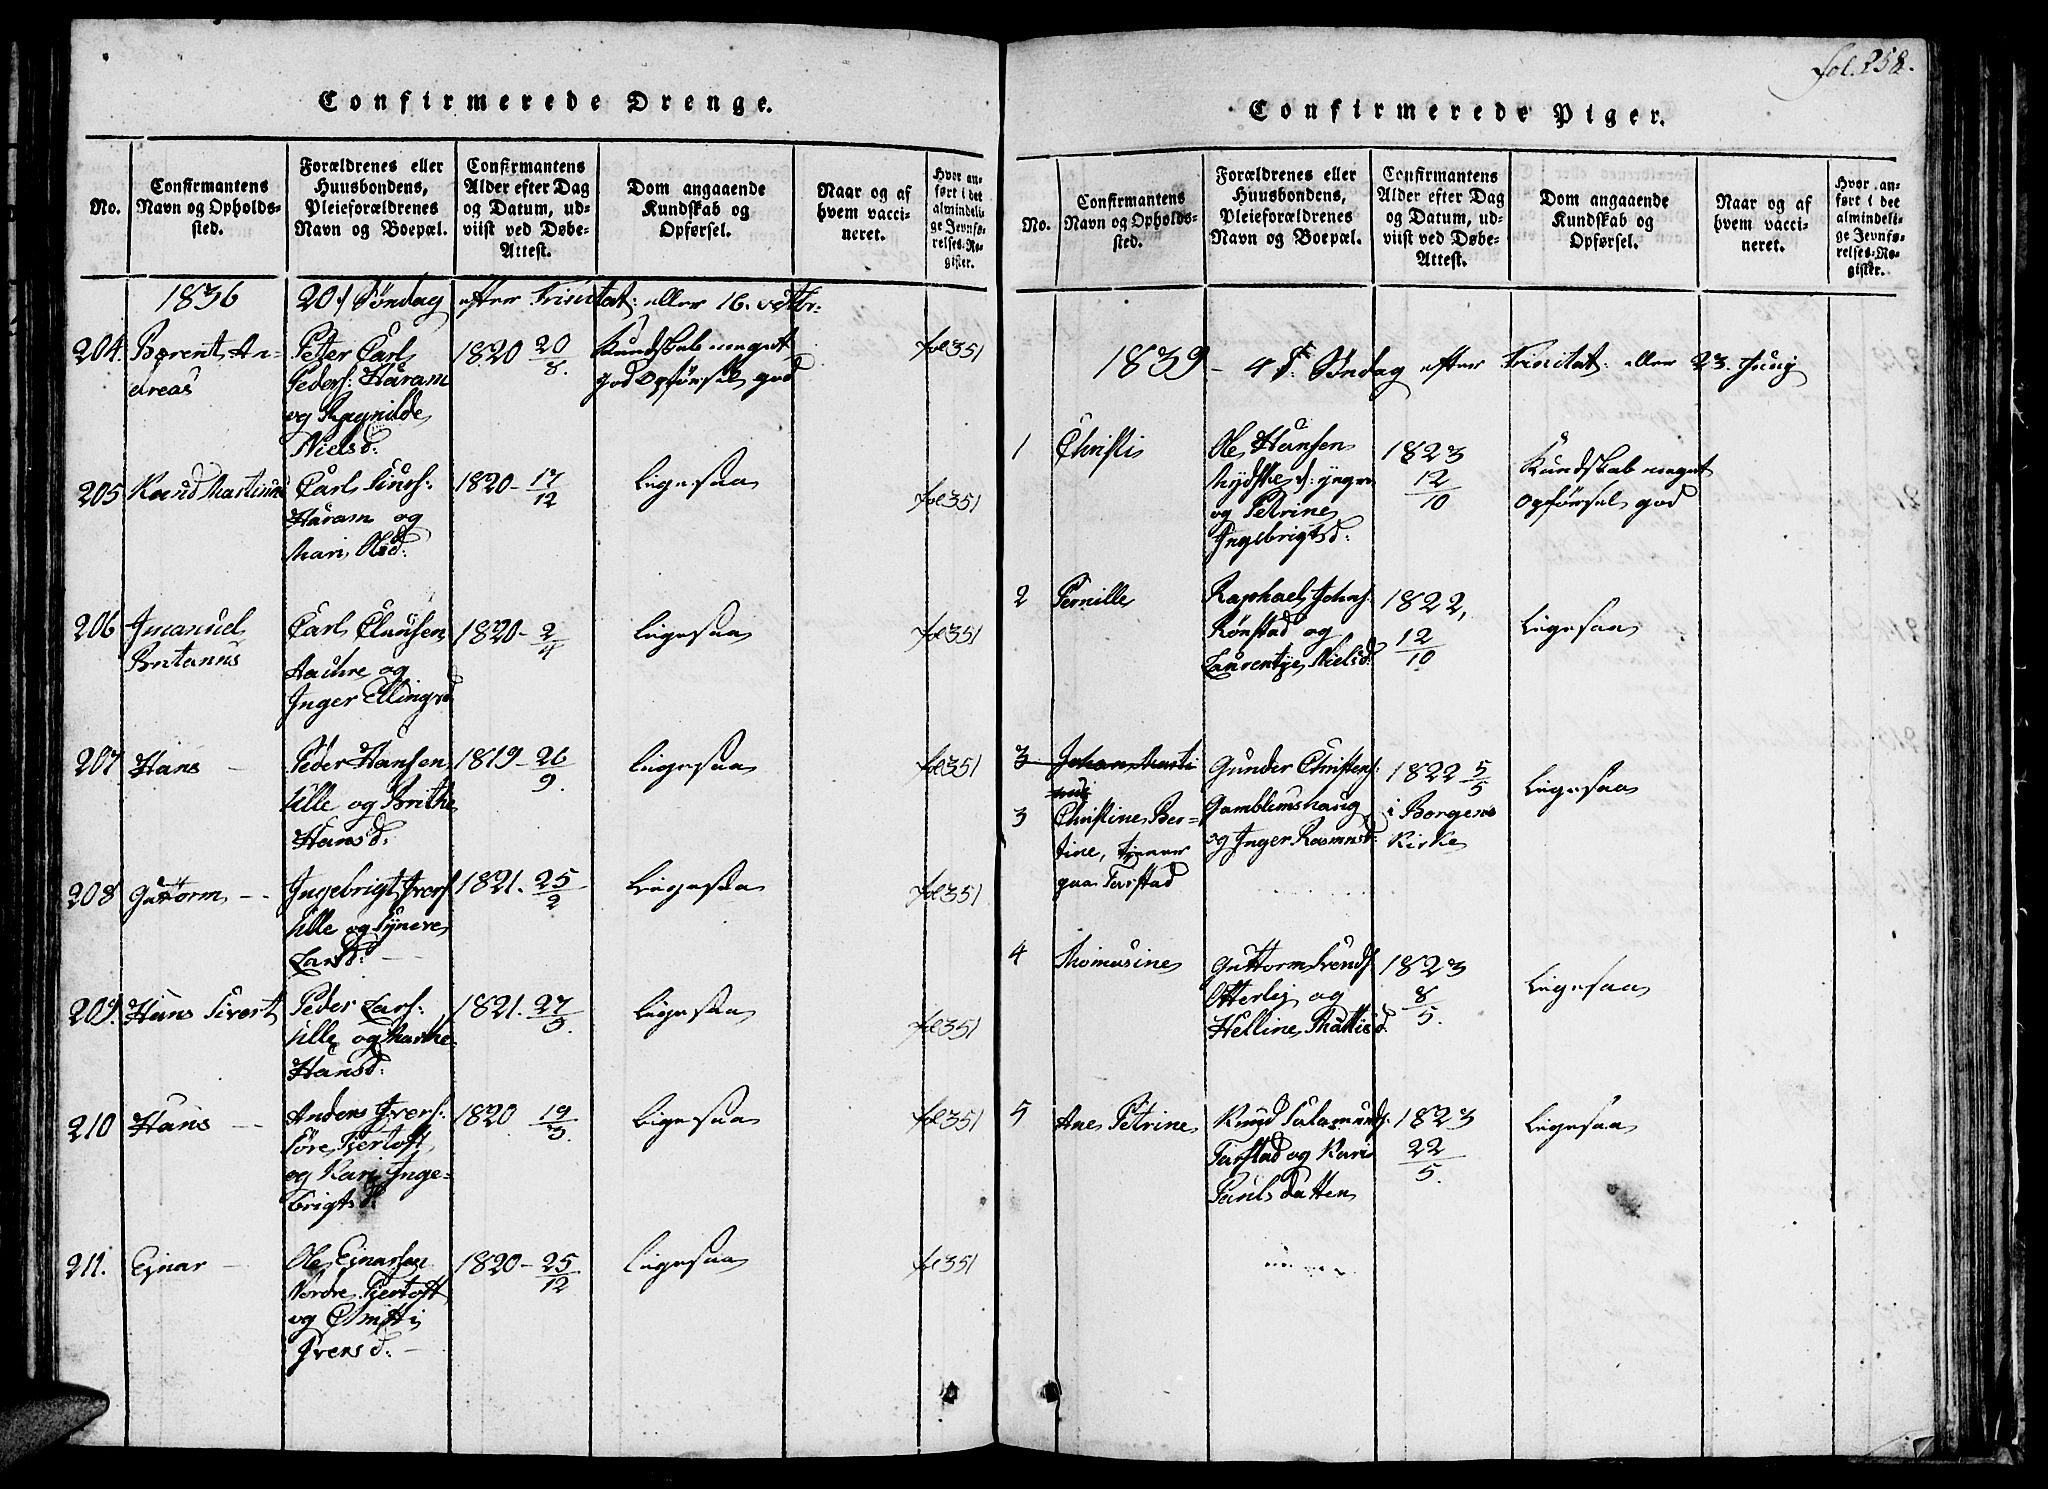 Confirmerede Drenge.
No.
Confirmantens
Navn og Opholds-
sted.
Forældrenes eller
Huusbondens,
Pleieforældrenes
Navn og Boepæl.
Confirmantens
Alder efter Dag
og Datum, ud-
viist ved Døbe-
Attest.
Dom angaaende
Kundskab og
Opførsel.
Naar og af
hvem vacci-
neret.
Hvor an-
ført i det
almindeli-
ge Jevnfø-
relses-Re-
gister.
1836 20 Søndag efter Trinitat: eller 16. octbr:
204. Berent An-
dreas
Peter Carl
Peders: Haram
og Ragnilde
Nielsd:
1820 20/8.
Kundskab meget
god Opførsel god
fol 351
205 Knud Martinus
Carl
Haram og
Mari Olsd:
1820- 17/12
Ligesaa
fol 351
206 Imanuel
Britanus
Carl Clausen
og
Inger Ellingsd
1820- 2/4
Ligesaa
fol 351
207 Hans -
Peder Hansen
Ulle og Brithe
Hansd:
1819- 26/9.
Ligesaa
fol 351
208 Guttorm --
Ingebrigt Ivers
Ulle og Synere
Larsd: -
1821. 25/2
Ligesaa
fol 351
209. Hans Sivert
Peder Lars:
Ulle og Marthe
Hansd:
1821. 27/3.
Ligesaa
fol 351
210 Hans --
Anders Ivers:
Søre Fjertoft
og Kari Inge-
brigts
1820 19/3.
Ligesaa
fol 351
211. Ejnar -
Ole Ejnarsen
Nordre Fjertoft
og
Iversd. -
1820- 25/12
Ligesaa
fol 351
fol. 258.
Confirmerede Piger.
No.
Confirmantens
Navn og Opholds-
sted.
Forældrenes eller
Huusbondens,
Pleieforældrenes
Navn og Boepæl.
Confirmantens
Alder efter Dag
og Datum, ud-
viist ved Døbe-
Attest.
Dom angaaende
Kundskab og
Opførsel.
Naar og af
hvem vacci-
neret.
Hvor an-
ført i det
almindeli-
ge Jevnfø-
relses-Re-
gister.
1839 - 4 Søndag efter Trinitat: eller 23. Junj
1 Christi
Ole Hansen
og Petrine
Ingebrigtsd:
1823
12/10
Kundskab meget
Opførsel god
2 Pernille
Raphael Johns:
Rønstad og
Laurentje Nielsd:
1822,
12/10
Ligesaa
3 Johan Marti
nus
3 Christine Ber-
tine, tjener
paa Farstad
Gunder Christens:
Gamblemshaug
og Inger Rasmusd:
1822 5/5
i Borgens
Kirke
Ligesaa
4 Thomasine
Guttorm Svends:
Otterlej og
Helline
1823
8/5.
Ligesaa
5 Ane Petrine
Knud Salamunds:
Farstad og Kari
Paulsdatten
1823
22/5.
Ligesaa